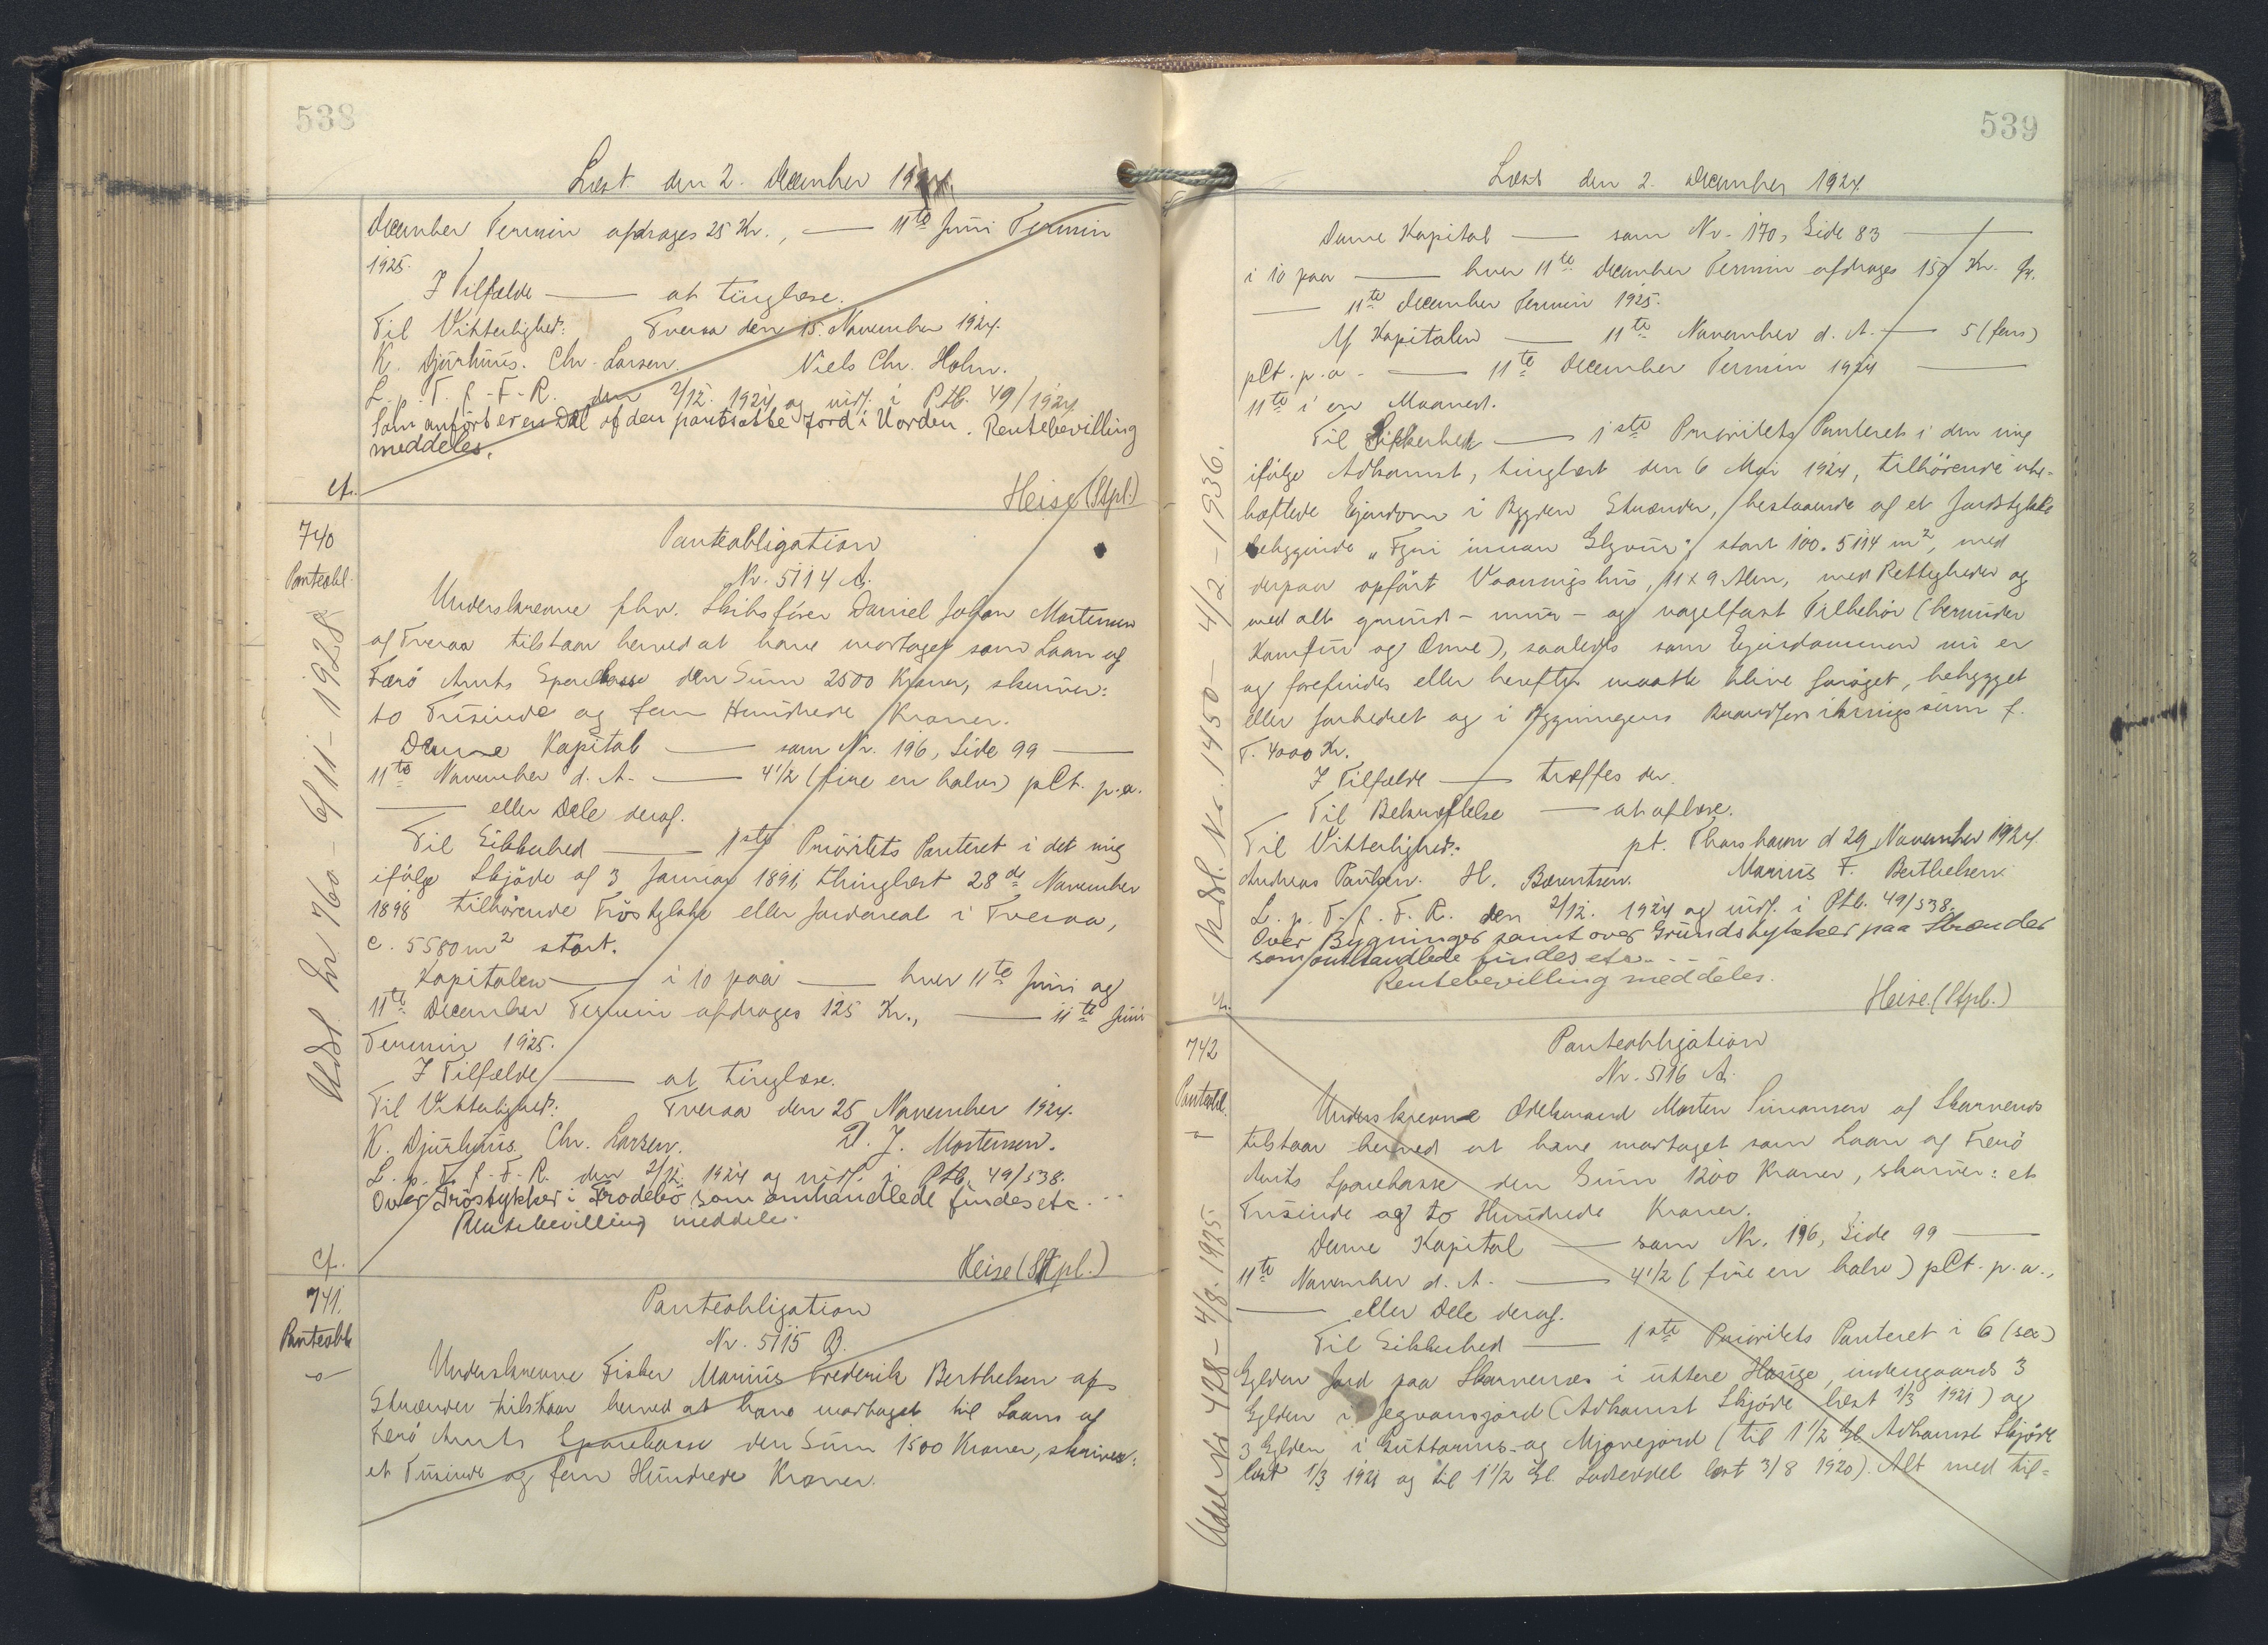 538
Læst den 2. December 1924.
December Termin afdrages 25 Kr., — 11te Juni Termin
1925.
I Tilfælde — at tinglæse.
Til Vitterlighed: Tveraa den 15. November 1924.
K. Djurhuus. Chr. Larsen. Niels Chr. Holm.
L. p. T. f. F. R. den 2/12. 1924 og indf. i Ptb. 49/1924
Som anført er en Del af den pantsatte Jord i Uorden. Rentebevilling
meddeles.
cf.
Heise (Stpl.)
740
Panteobl.
Udsl. Nr 760 - 6/11 - 1928
Panteobligation
Nr. 5114 A.
Underskrevne fhv. Skibsfører Daniel Johan Mortensen
af Tveraa tilstaar herved at have modtaget som Laan af
Færø Amts Sparekasse den Sum 2500 Kroner, skriver:
to Tusinde og fem Hundrede Kroner.
Denne Kapital — som Nr. 196, Side 99 —
11te November d. A. — 4 1/2 (fire en halv) pCt. p.a.
— eller Dele deraf.
Til Sikkerhed — 1ste Prioritets Panteret i det mig
ifølge Skjøde af 3 Januar 1891, thinglæst 28de November
1898 tilhørende Trøstykke eller Jordareal i Tveraa,
c. 5580 m2 stort.
Kapitalen — i 10 paa — hver 11te Juni og
11te December Termin afdrages 125 Kr., — 11te Juni
Termin 1925.
I Tilfælde — at tinglæse.
Til Vitterlighed: Tveraa den 25 November 1924.
K. Djurhuus. Chr. Larsen. D. J. Mortensen.
L. p. T. f. F. R. den 2/12. 1924 og indf. i Ptb. 49/538.
Over Trøstykker i Frodebø som omhandlede findes etc. ...
Rentebevilling meddeles.
cf.
Heise (Stpl.)
741.
Panteobl
Panteobligation
Nr. 5115 B.
Underskrevne Fisker Marius Frederik Berthelsen af
Strænder tilstaar herved at have modtaget til Laans af
Færø Amts Sparekasse den Sum 1500 Kroner, skriver:
et Tusinde og fem Hundrede Kroner.
539
Læst den 2. December 1924.
Denne Kapital — som Nr. 170, Side 83 —
i 10 paa — hver 11te December Termin afdrages 150 Kr.
— 11te December Termin 1925.
Af Kapitalen — 11te November d. A. — 5 (fem)
pCt. p. a. — 11te December Termin 1924 —
11te i en Maaned.
Til Sikkerhed — 1ste Prioritets Panteret i den mig
ifølge Adkomst, tinglæst den 6 Mai 1924, tilhørende ube-
hæftede Ejendom i Bygden Strænder, bestaaende af et Jordstykke
beliggende "Fyri innan Glyvur", stort 100. 5114 m2, med
derpaa opført Vaaningshus, 11 x 9 Alen, med Rettigheder og
med alt grund- mur- og nagelfast Tilbehør (herunder
Komfur og Ovne), saaledes som Ejendommen nu er
og forefindes eller herefter maatte blive forøget, bebygget
eller forbedret og i Bygningens Brandforsikringssum f.
T. 4000 Kr.
I Tilfælde — træffes der.
Til Bekræftelse — at aflæse.
Til Vitterlighed: pt. Thorshavn d 29 November 1924.
Andreas Paulsen. H. Bærentsen. Marius F. Berthelsen.
L. p. T. f. F. R. den 2/12. 1924 og indf. i Ptb. 49/538.
Over Bygninger samt over Grundstykker paa Strænder
som omhandlede findes etc. ...
Rentebevilling meddeles.
cf.
Heise. (Stpl.)
Udsl. Nr. 1450 - 4/2 - 1936.
742
Panteobl.
Udsl Nr 428 - 4/8. 1925.
Panteobligation
Nr. 5116 A.
Underskrevne Odelsmand Morten Simonsen af Skarvenes
tilstaar herved at have modtaget som Laan af Færø
Amts Sparekasse den Sum 1200 Kroner, skriver: et
Tusinde og to Hundrede Kroner.
Denne Kapital — som Nr. 196, Side 99 —
11te November d. A. — 4 1/2 (fire en halv) pCt. p. a.,
— eller Dele deraf.
Til Sikkerhed — 1ste Prioritets Panteret i 6 (sex)
Gylden Jord paa Skarvenes i uttere Hauge, indengaards 3
Gylden i Jegvansjord (Adkomst Skjøde læst 1/3 1921) og
3 Gylden i Guttorms- og Mjovejord (til 1 1/2 Gl. Adkomst Skjøde
læst 1/3 1921 og til 1 1/2 Gl. Lodseddel læst 3/8 1920). Alt med til-